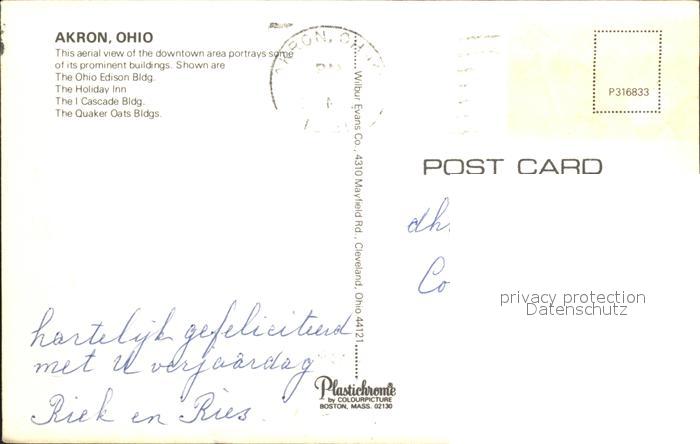 AKRON, OHIO
This aerial view of the downtown area portrays some
of its prominent buildings. Shown are
The Ohio Edison Bldg.
The Holiday Inn
The I Cascade Bldg.
The Quaker Oats Bldgs.
AKRON, OH
PM
P316833
Wilbur Evans Co., 4310 Mayfield Rd., Cleveland, Ohio 44121
POST CARD
dh.
Co
privacy protection
Datenschutz
hartelijk gefeliciteerd
met U verjaardag
Riek en Ries.
Plastichrome®
by COLOURPICTURE
BOSTON, MASS. 02130